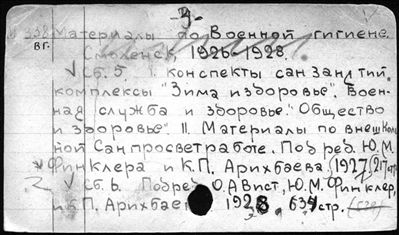 -3-
338 Материалы по Военной гигиене.
ВГ. Смоленск, 1926-1928.
√ Сб. 5. I. конспекты сан занятий,
комплексы "Зима и здоровье", "Воен-
ная служба и здоровье". "Общество
и здоровье". II. Материалы по внешколь
ной Санпросветработе. Под ред. Ю.М.
√ Финклера и К.П. Арихбаева, 1927, 217 стр.
2 √ Сб. 6. Под ред. О.А Вист, Ю.М. Финклер,
и К.П. Арихбаев 1928, 634 стр.